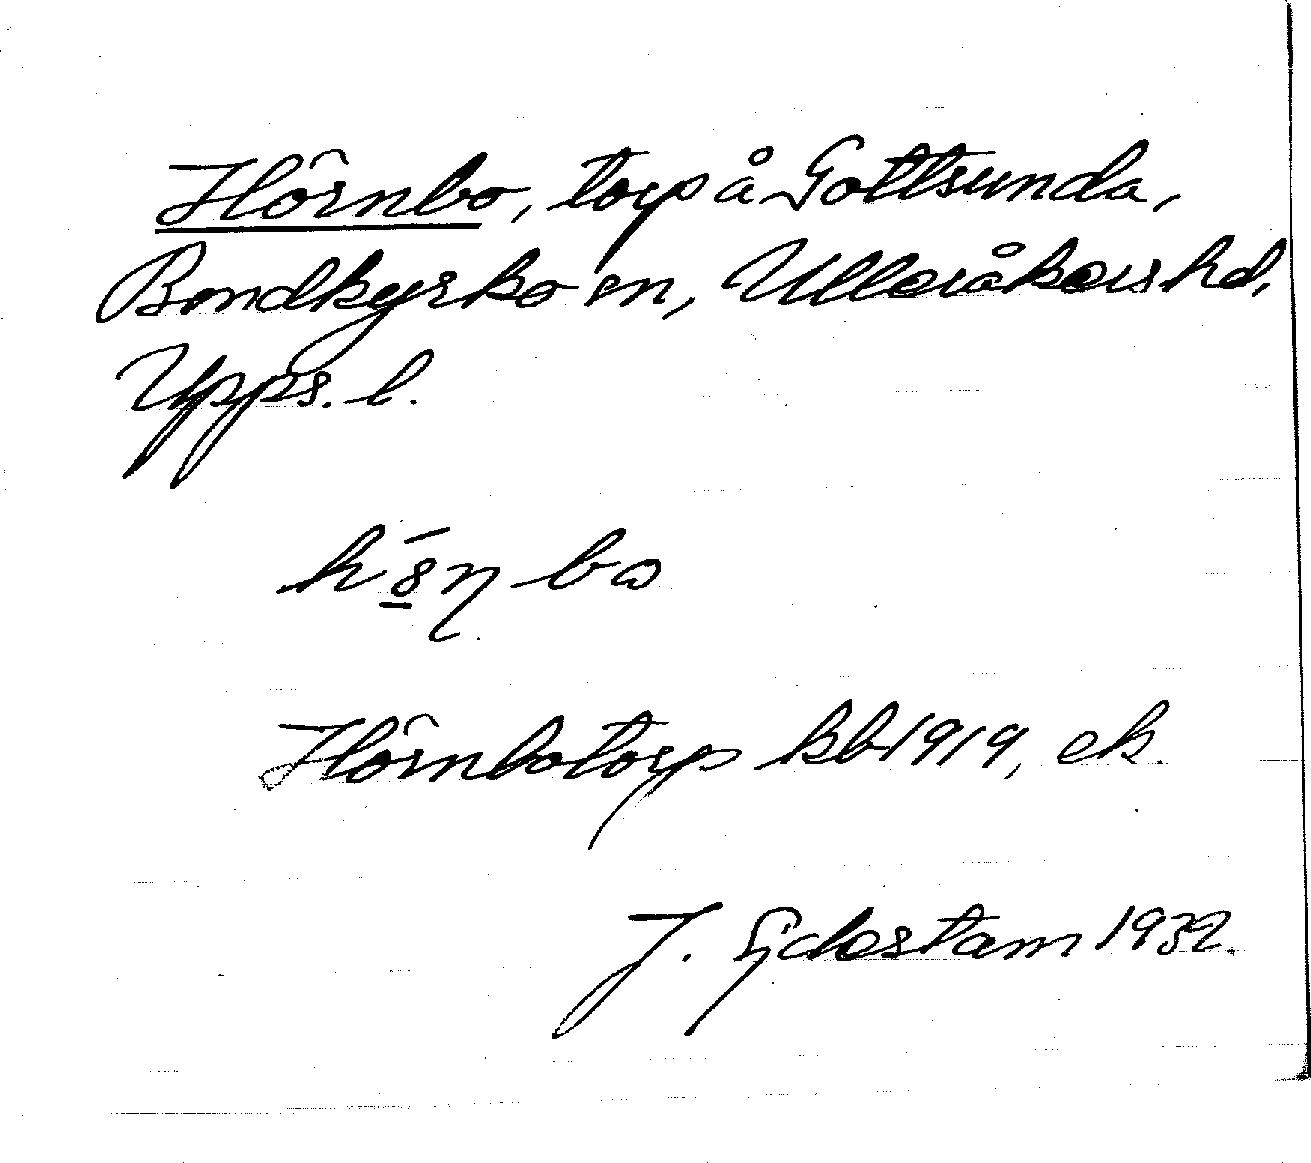 Hörnbo, torp å Gottsunda,
Bondkyrko sn, Ulleråkers hd,
Upps. l.
Hörnbotorp kb 1919, ek.
J. Gdestam 1932.